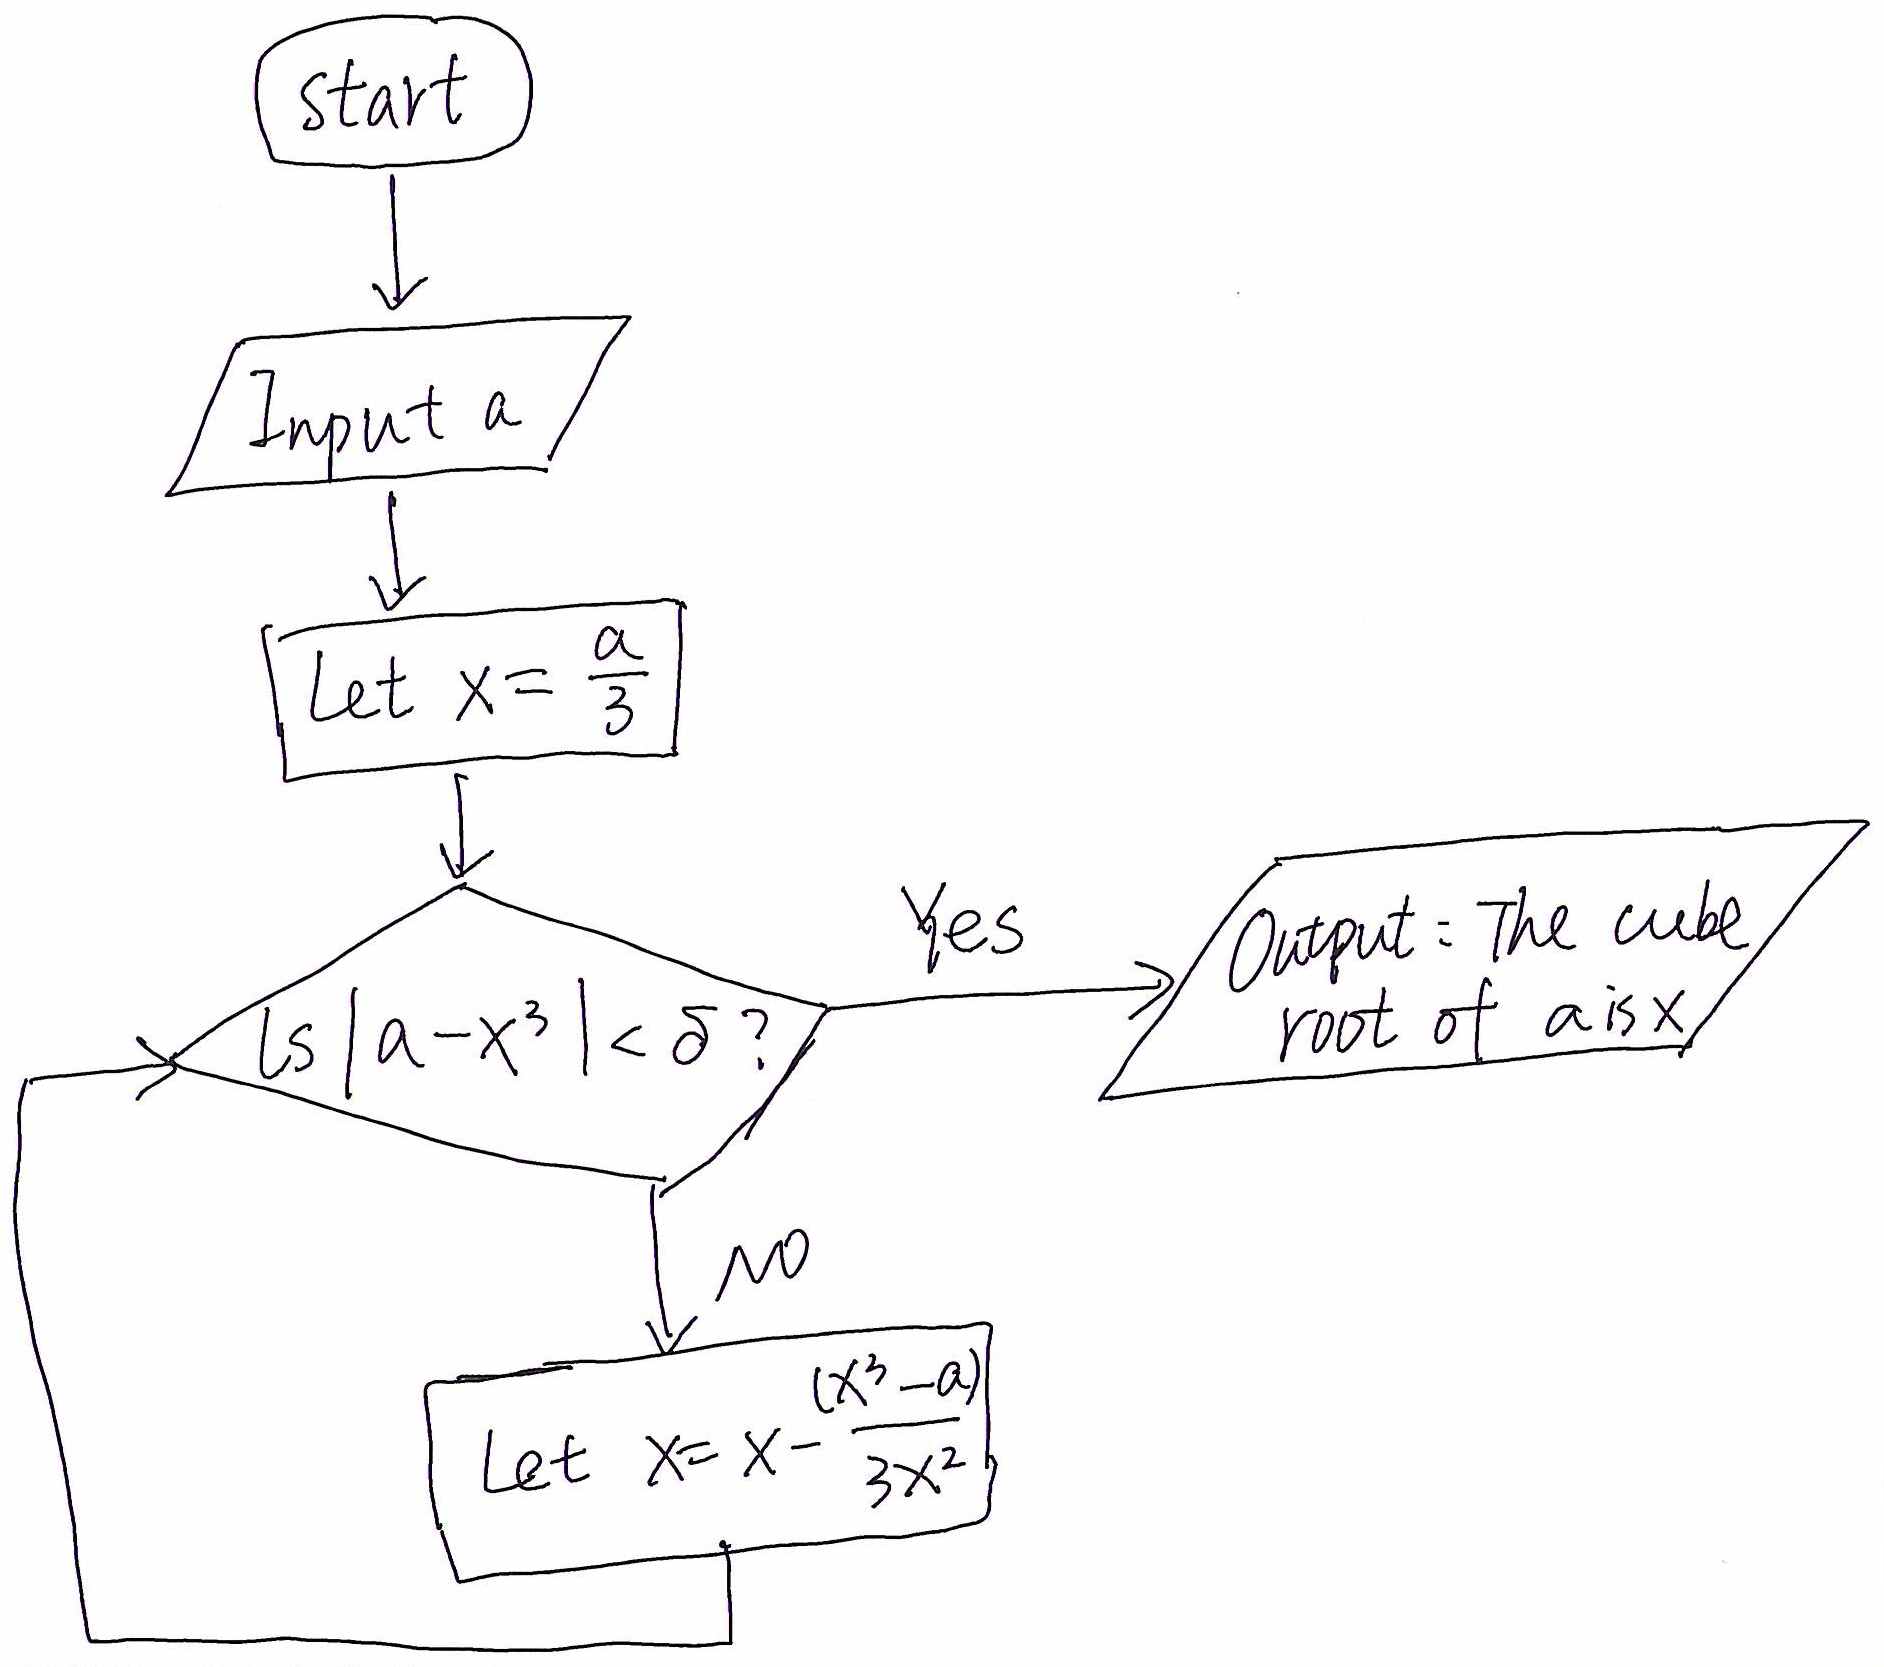 start
Input a
Let x = a/3
Is |a-x³| < δ?
Yes
Output: The cube
root of a is x
NO
Let x = x - (x³-a)/3x²